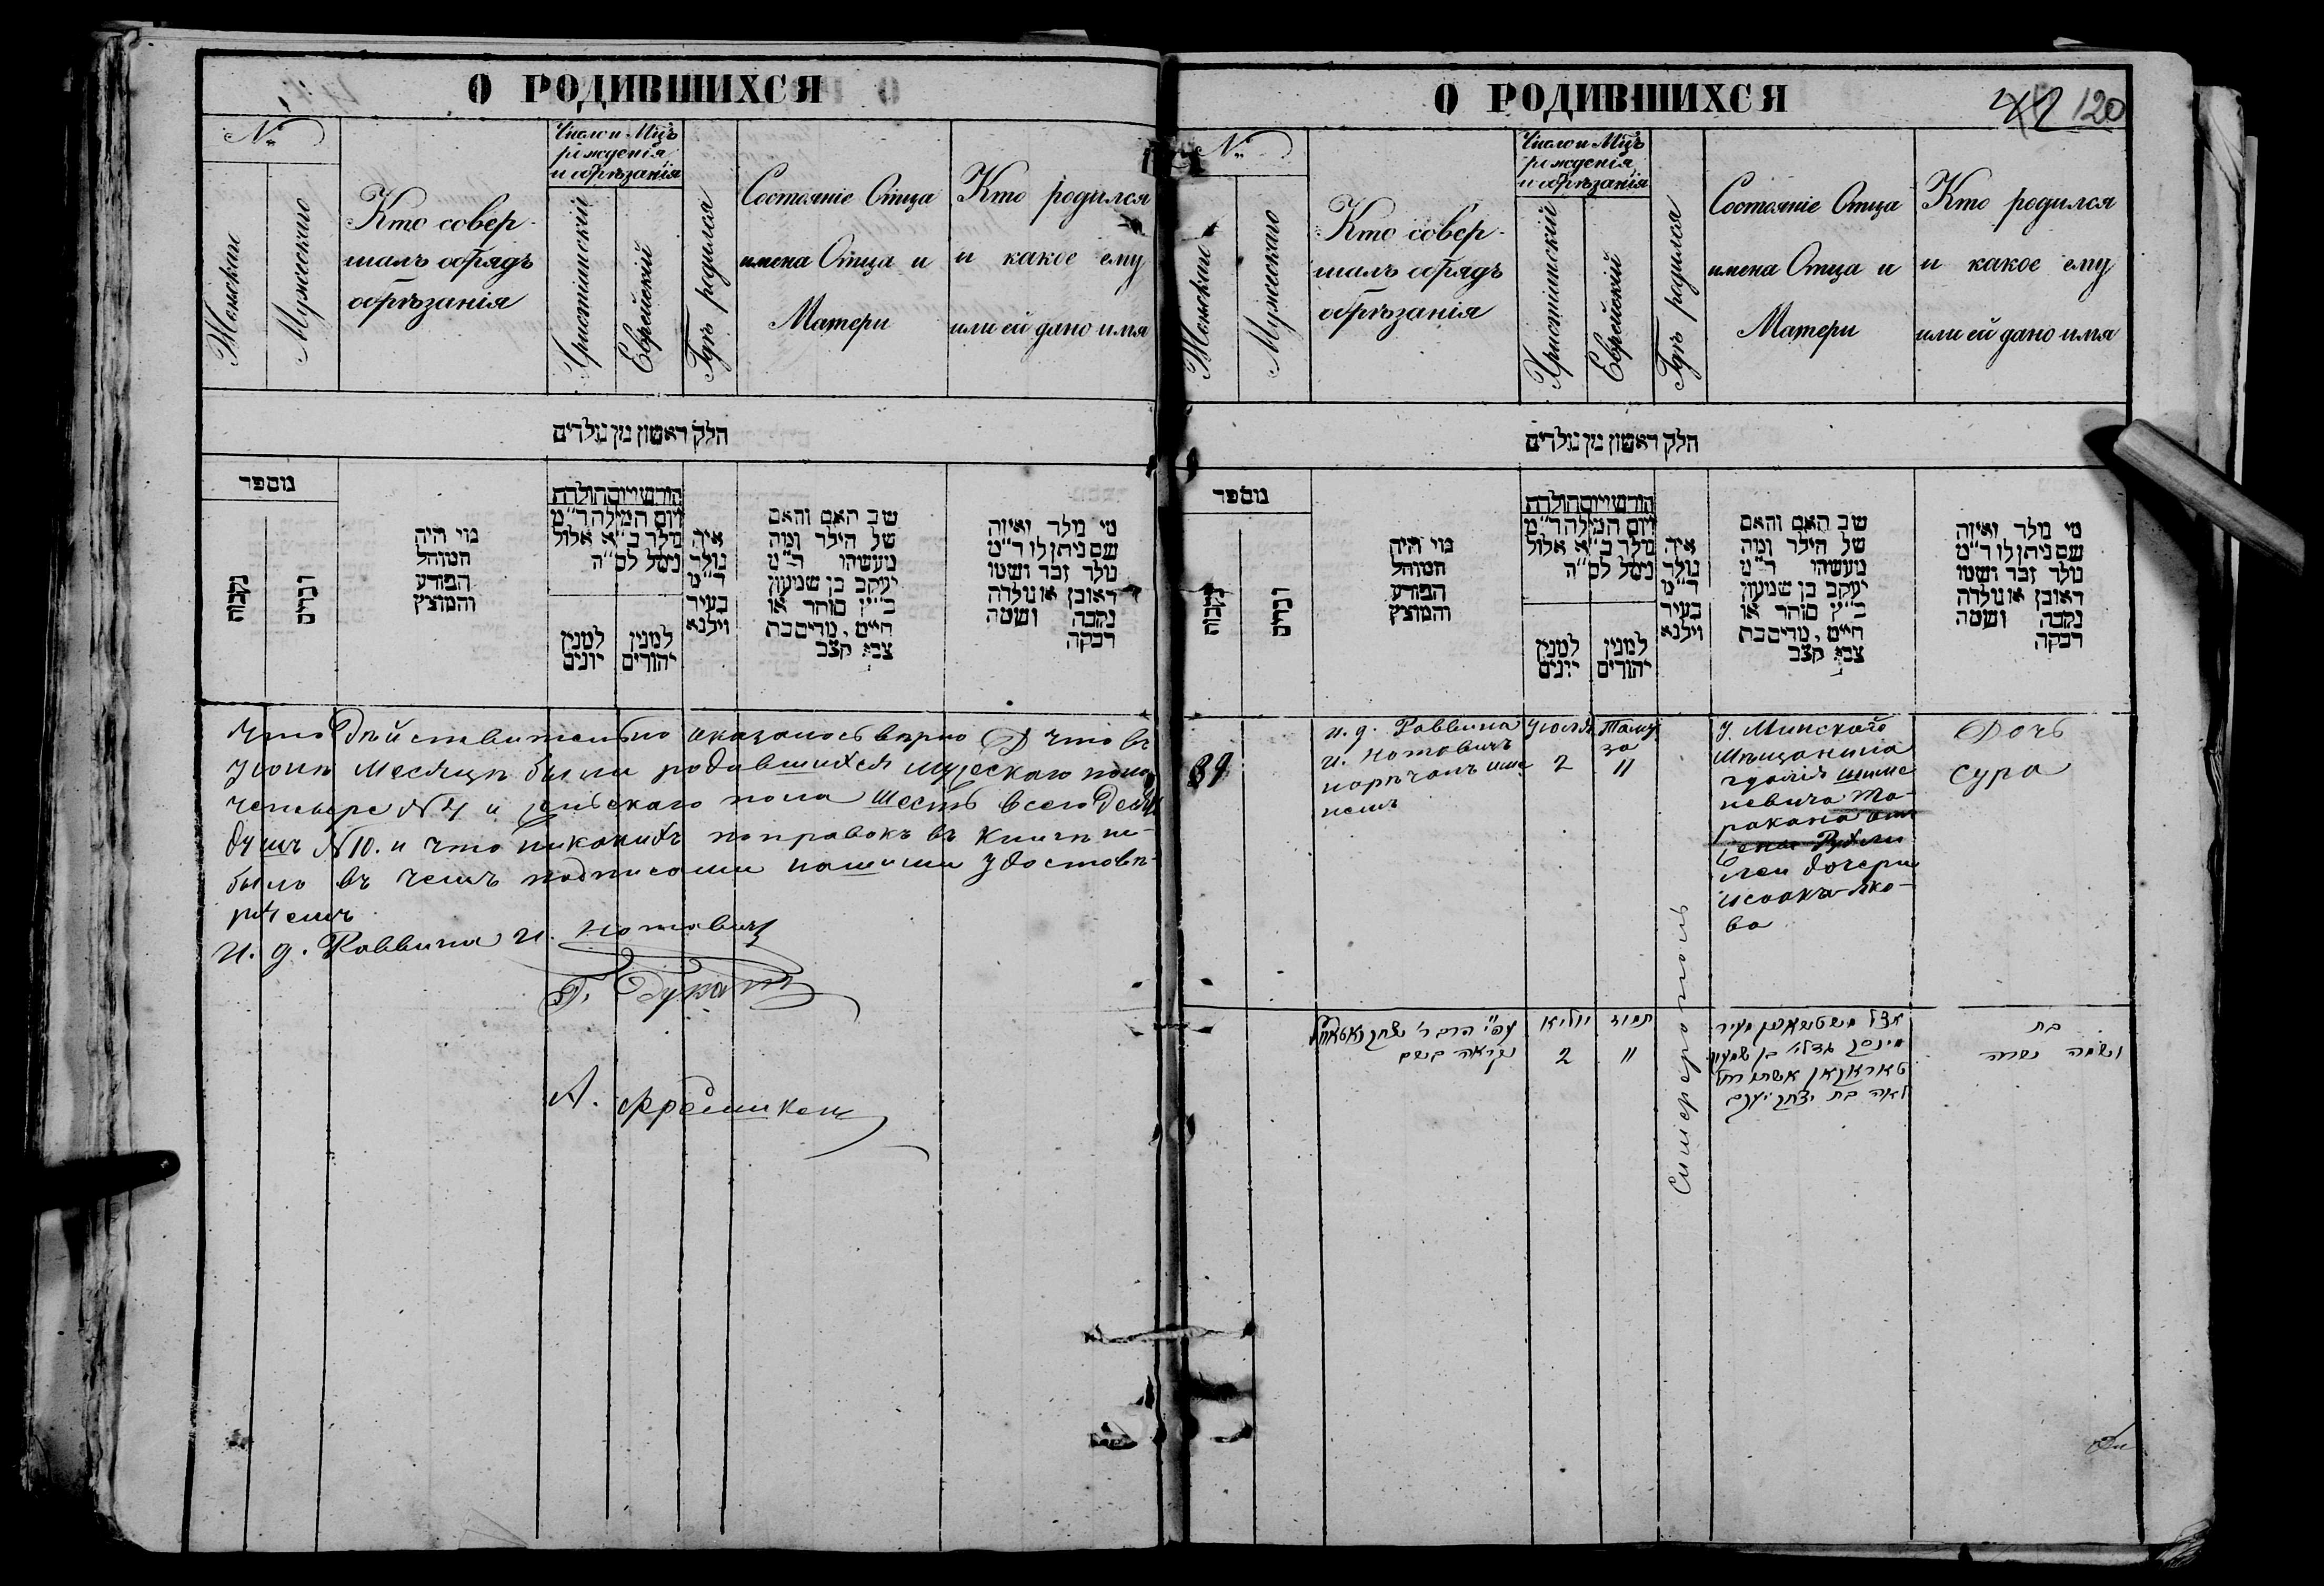 О РОДИВШИХСЯ
№
Женскаго
Мужескаго
Кто совер-
шалъ обрядъ
обрѣзанія
Число и Мцъ
рожденія
и обрѣзанія
Христіанскій
Еврейскій
Гдѣ родился
Состояніе Отца
имена Отца и
Матери
Кто родился
и какое ему
или ей дано имя
חלק ראשון מן נולדים
מספר
נקבות
זכרים
מי היה
המוהל
הפורע
והמוצץ
חודש ויום הולדת
ויום המילה ר״מ
נולד ב״א אלול
נימל לס״ה
למנין
יונים
למנין
יהודים
איה
נולד
ד״מ
בעיר
וילנא
שב האם והאם
של הילד ומה
מעשיהו ד״מ
יעקב בן שמעון
כ״ץ סוחר או
חייט, מרים בת
צבי קצב
מי נולד ואיזה
שם ניתן לו ד״מ
נולד זכר ושמו
ראובן או נולדה
נקבה ושמה
רבקה
Что Дѣйствительно оказалось вѣрно и что въ
Іюнѣ Месяцѣ были родившихся мужескаго пола
четыре №4 и женскаго пола шесть всего десять
душъ №10. и что никакихъ поправокъ въ Книгѣ не-
было въ чемъ подписами нашими удостовѣ-
ряемъ
И. д. Раввина И. Нотовичъ
Г. Дукатъ
А.
О РОДИВШИХСЯ
120
№
Женскаго
Мужескаго
Кто совер-
шалъ обрядъ
обрѣзанія
Число и Мцъ
рожденія
и обрѣзанія
Христіанскій
Еврейскій
Гдѣ родился
Состояніе Отца
имена Отца и
Матери
Кто родился
и какое ему
или ей дано имя
חלק ראשון מן נולדים
מספר
נקבות
זכרים
מי היה
המוהל
הפורע
והמוצץ
חודש ויום הולדת
ויום המילה ר״מ
נולד ב״א אלול
נימל לס״ה
למנין
יונים
למנין
יהודים
איה
נולד
ד״מ
בעיר
וילנא
שב האם והאם
של הילד ומה
מעשיהו ד״מ
יעקב בן שמעון
כ״ץ סוחר או
חייט, מרים בת
צבי קצב
מי נולד ואיזה
שם ניתן לו ד״מ
נולד זכר ושמו
ראובן או נולדה
נקבה ושמה
רבקה
39
и. д. Раввина
И. Нотовичъ
нарѣчанъ име
немъ
Іюля
2
Таму
за
11
Симферополь
У Минскаго
Мѣщанина
Гдалія Шиме
невича Та-
ракана
леи дочери
Исаакъ Яко-
ва
Дочь
Сура
נקראה בשם
יוליא
2
תמוז
11
אצל
מינסק גדליה בן שמעון
טאראקאן אשתו רחל
לאה בת יצחק יעקב
בת
ושמה שרה